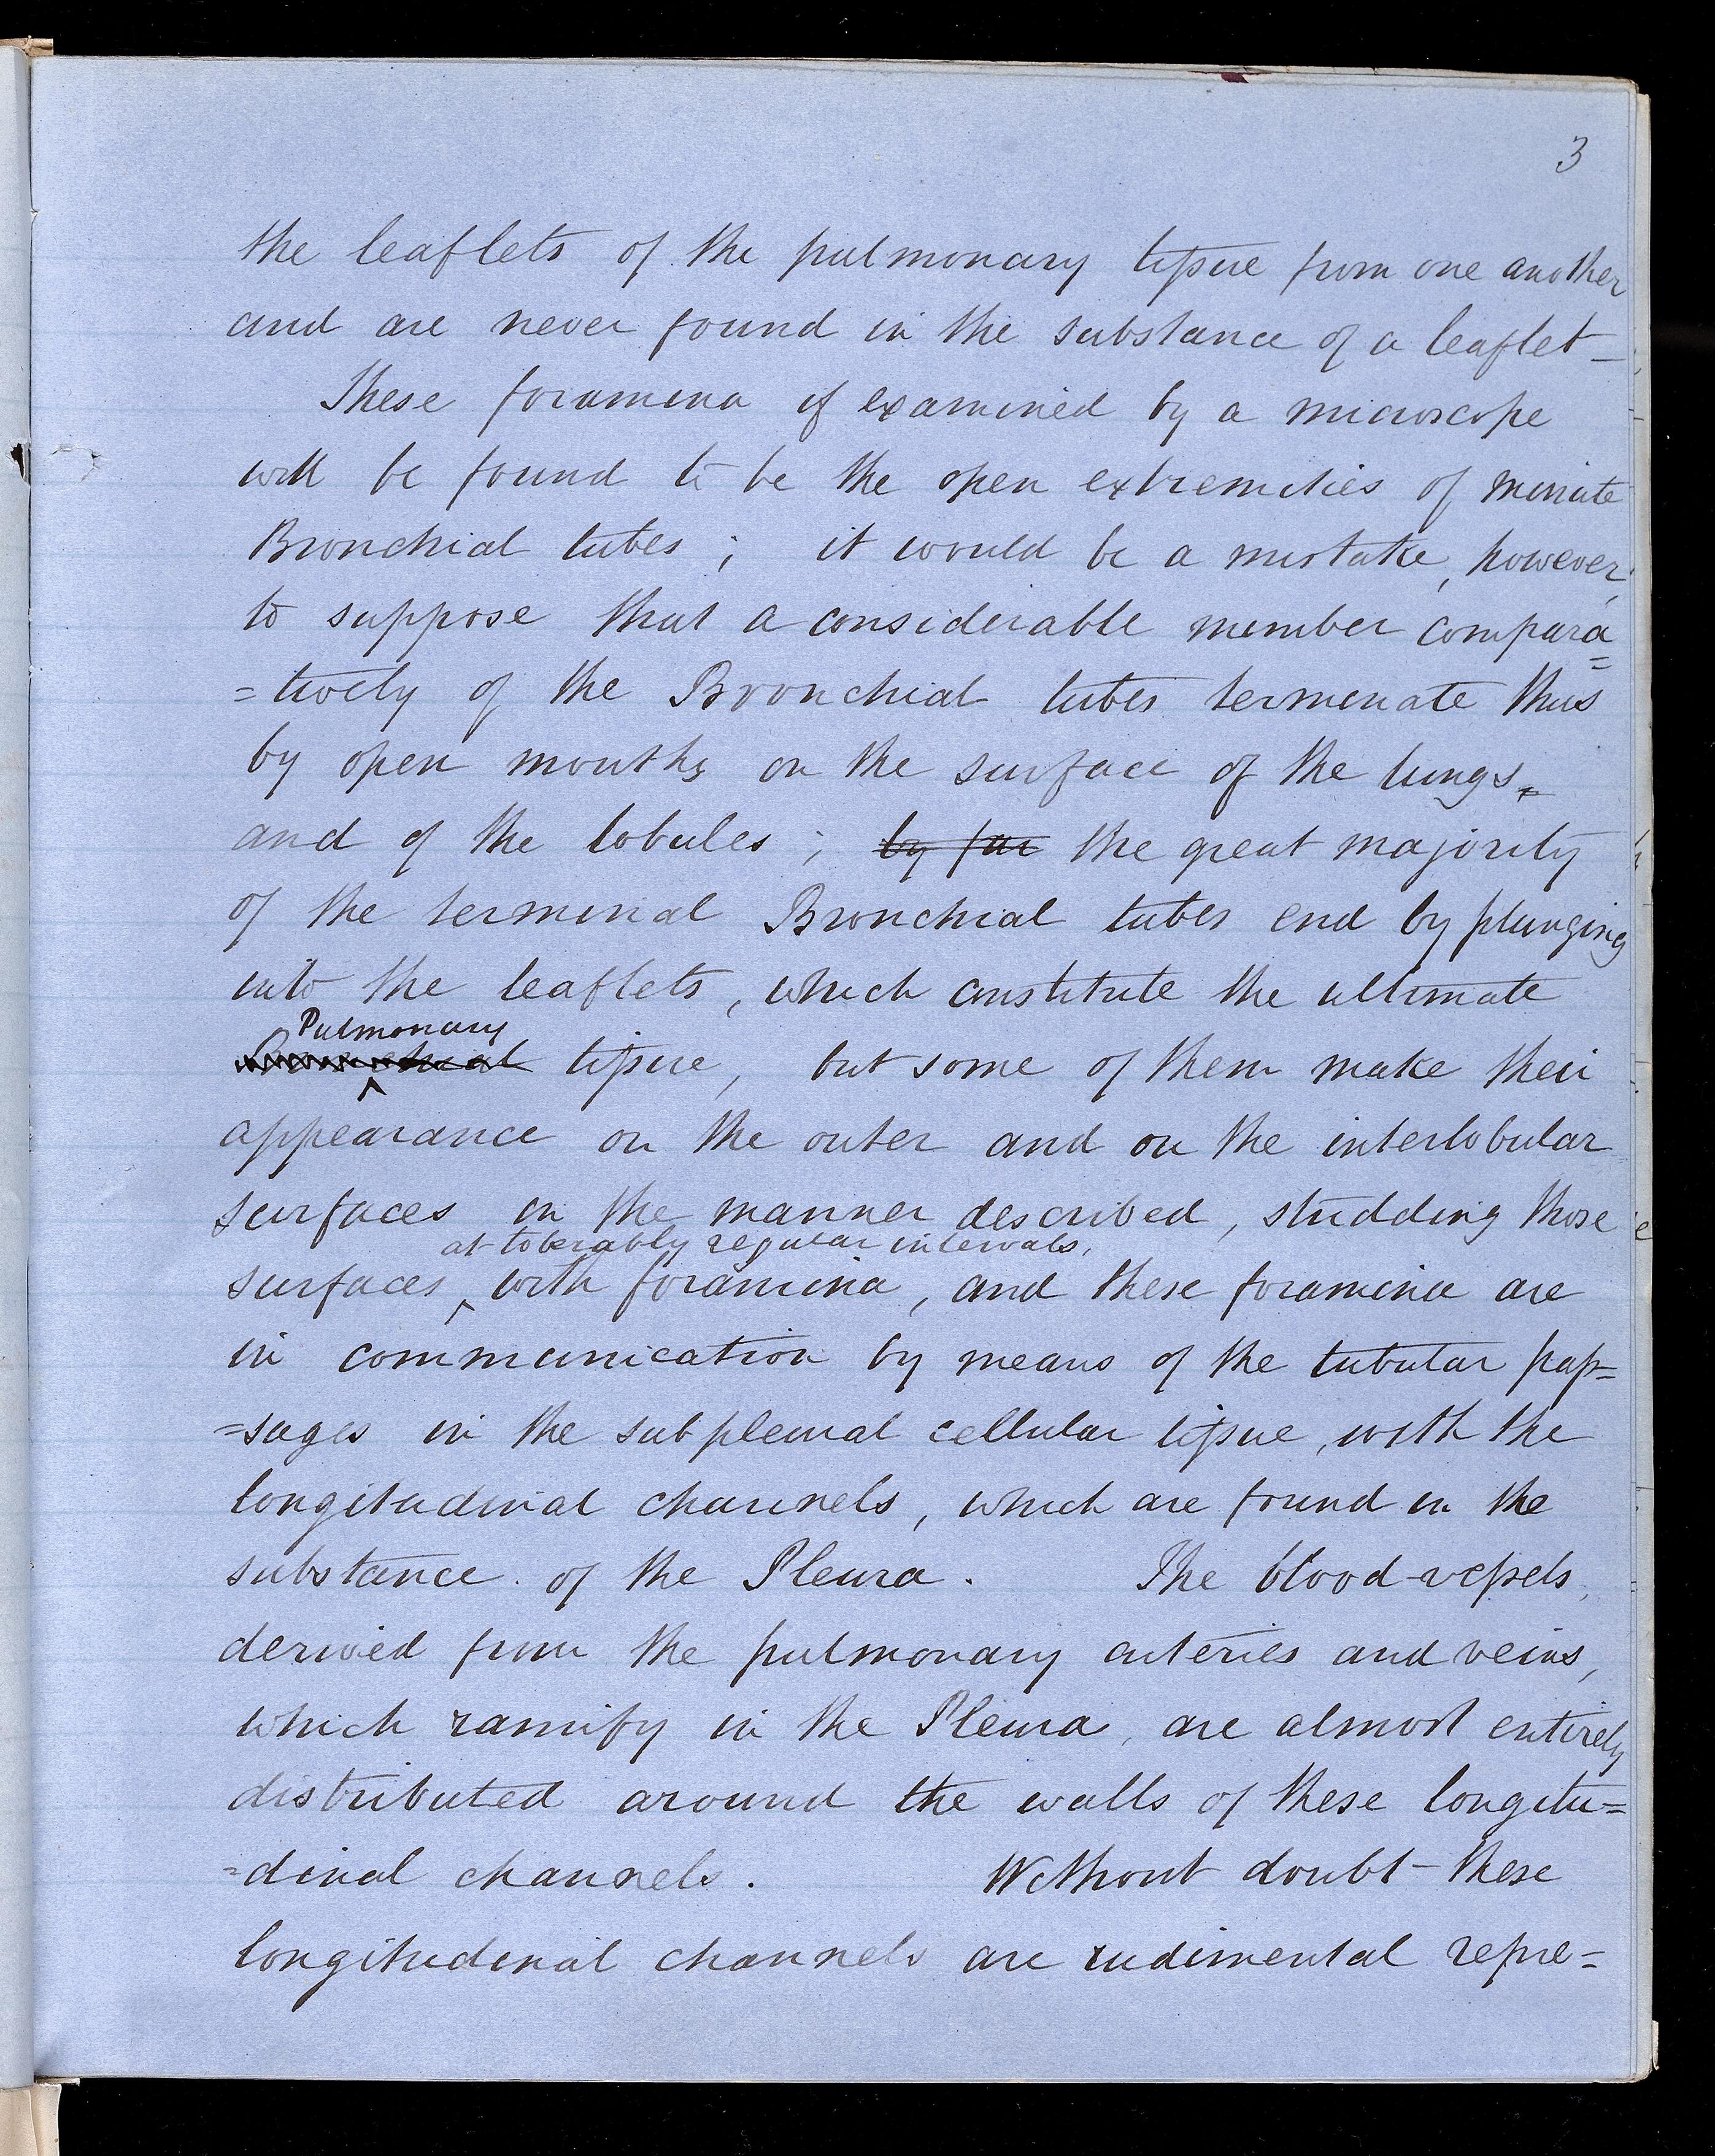 3
the leaflets of the pulmonary tissue from one another
and are never found in the substance of a leaflet —
These foramina if examined by a microscope
will be found to be the open extremities of minute
Bronchial tubes ; it would be a mistake, however,
to suppose that a considerable number compara=
=tively of the Bronchial tubes terminate thus
by open mouths on the surface of the lungs
and of the lobules ; by far the great majority
of the terminal Bronchial tubes end by plunging
into the leaflets, which constitute the ultimate
Pulmonary
Bronchial tissue, but some of them make their
appearance on the outer and on the interlobular
surfaces in the manner described, studding those
at tolerably regular intervals,
surfaces ‸ with foramina, and these foramina are
in communication by means of the tubular pas=
=sages in the subpleural cellular tissue, with the
longitudinal channels, which are found in the
substance of the Pleura. The blood-vessels,
derived from the pulmonary arteries and veins,
which ramify in the Pleura, are almost entirely
distributed around the walls of these longitu=
=dinal channels. Without doubt these
longitudinal channels are rudimental repre=